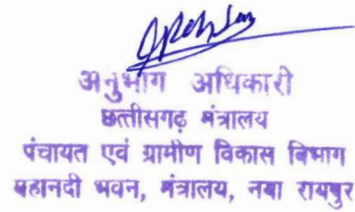 अनुभाग अधिकारी
छत्तीसगढ़ मंत्रालय
पंचायत एवं ग्रामीण विकास विभाग
महानदी भवन, मंत्रालय, नवा रायपुर